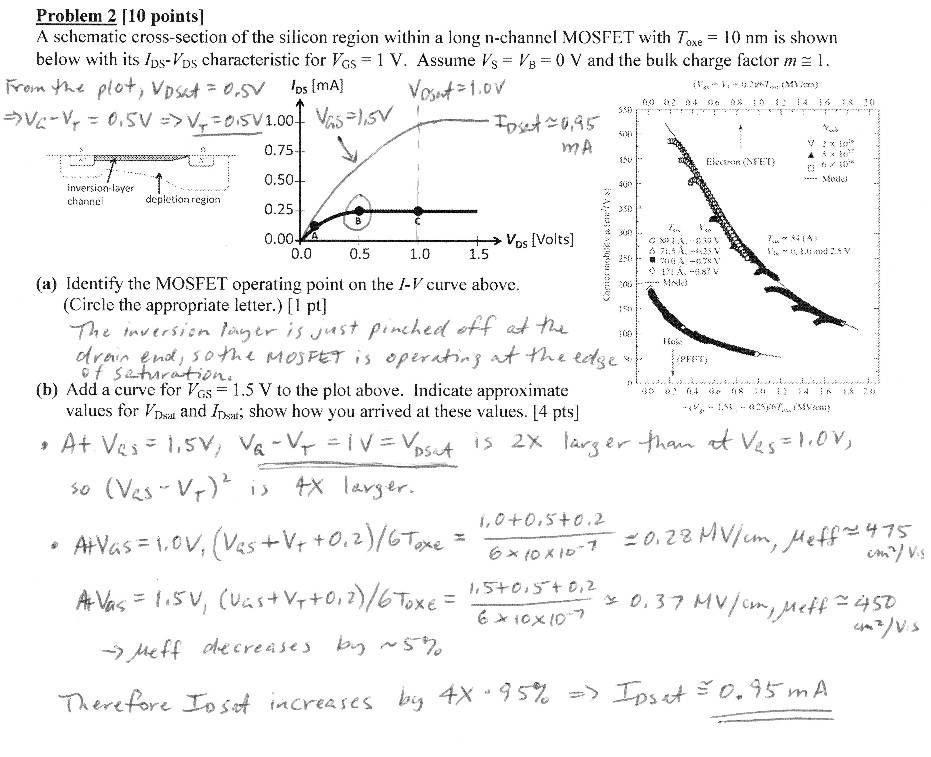 Problem 2 [10 points]
A schematic cross-section of the silicon region within a long n-channel MOSFET with Toxe = 10 nm is shown
below with its IDS-VDS characteristic for VGS = 1 V. Assume VS = VB = 0 V and the bulk charge factor m ≅ 1.
From the plot, VDsat = 0.5V
⇒VG-VT = 0.5V ⇒ VT = 0.5V
IDS [mA]
VDsat = 1.0V
VGS = 1.5V
IDsat ≅ 0.95
mA
1.00
0.75
0.50
0.25
0.00
A
B
C
0.0 0.5 1.0 1.5
VDS [Volts]
inversion-layer
channel
depletion region
0.0 0.2 0.4 0.6 0.8 1.0 1.2 1.4 1.6 1.8 2.0
Electron (NFET)
Model
Model
Hole
(PFET)
(a) Identify the MOSFET operating point on the I-V curve above.
(Circle the appropriate letter.) [1 pt]
The inversion layer is just pinched off at the
drain end, so the MOSFET is operating at the edge
of saturation.
(b) Add a curve for VGS = 1.5 V to the plot above. Indicate approximate
values for VDsat and IDsat; show how you arrived at these values. [4 pts]
• At VGS = 1.5V, VG - VT = 1V = VDSAT is 2X larger than at VGS = 1.0V,
so (VGS - VT)² is 4X larger.
• At VGS = 1.0V, (VGS + VT + 0.2)/6Toxe = 1.0+0.5+0.2 / 6×10×10⁻⁷ ≅ 0.28 MV/cm, μeff ≅ 475 cm²/V.s
At VGS = 1.5V, (VGS + VT + 0.2)/6Toxe = 1.5+0.5+0.2 / 6×10×10⁻⁷ ≅ 0.37 MV/cm, μeff ≅ 450 cm²/V.s
→ μeff decreases by ~5%
Therefore IDsat increases by 4X · 95% ⇒ IDsat ≅ 0.95 mA